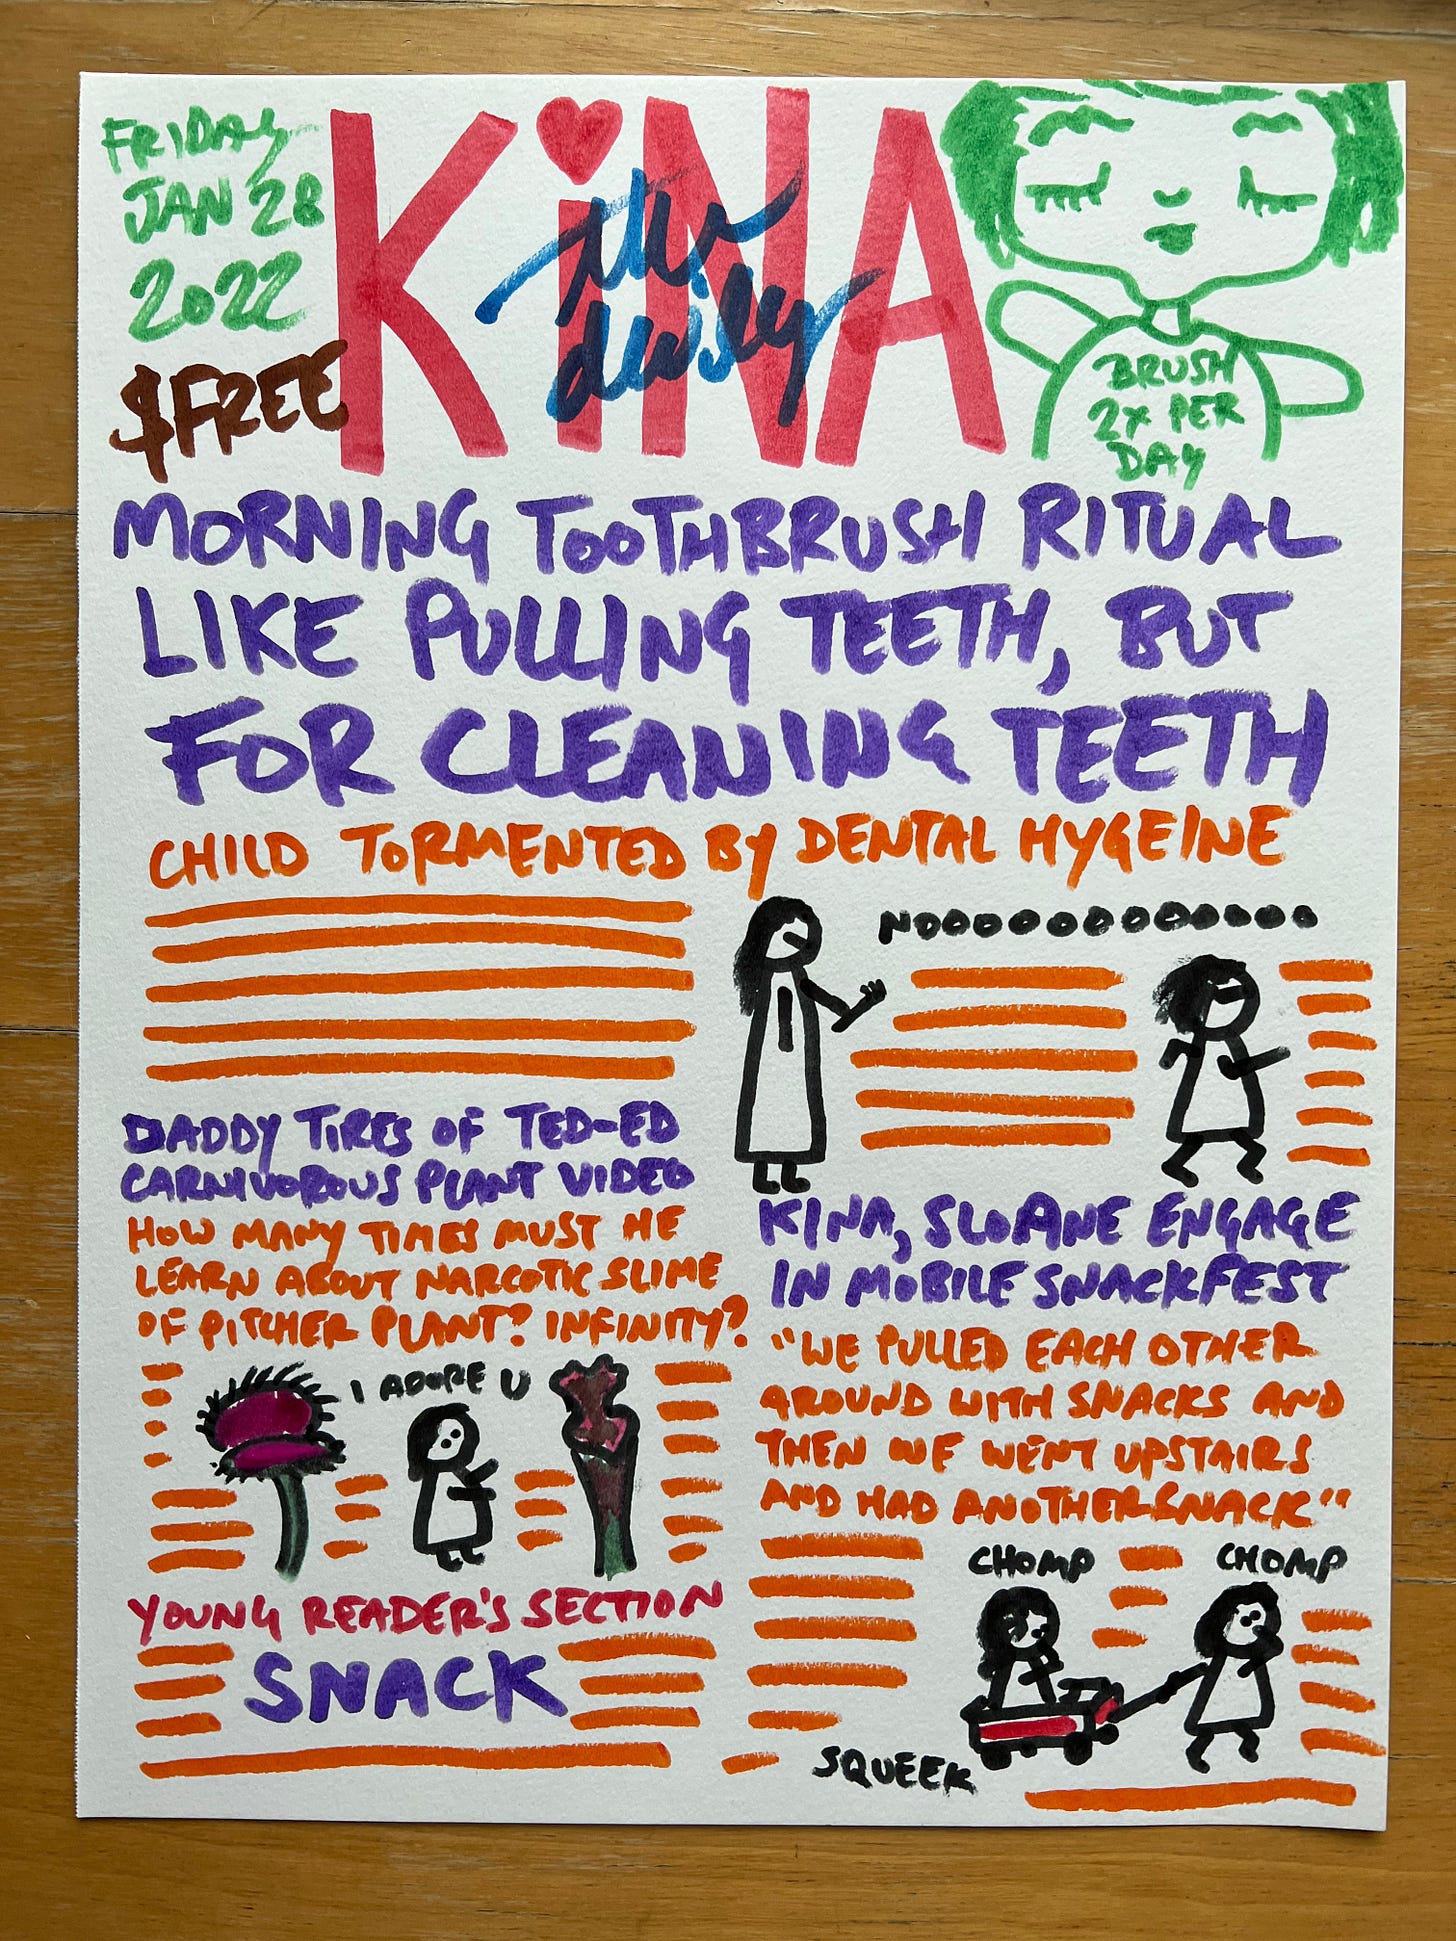 FRIDAY
JAN 28
2022
$FREE
KiNA
the
daily
BRUSH
2x PER
DAY
MORNING TOOTHBRUSH RITUAL
LIKE PULLING TEETH, BUT
FOR CLEANING TEETH
CHILD TORMENTED BY DENTAL HYGEINE
NOOOOOOOOOOOOOO
DADDY TIRES OF TED-ED
CARNIVOROUS PLANT VIDEO
HOW MANY TIMES MUST HE
LEARN ABOUT NARCOTIC SLIME
OF PITCHER PLANT? INFINITY?
I ADORE U
YOUNG READER'S SECTION
SNACK
KINA, SLOANE ENGAGE
IN MOBILE SNACKFEST
"WE PULLED EACH OTHER
AROUND WITH SNACKS AND
THEN WE WENT UPSTAIRS
AND HAD ANOTHER SNACK"
CHOMP CHOMP
SQUEEK